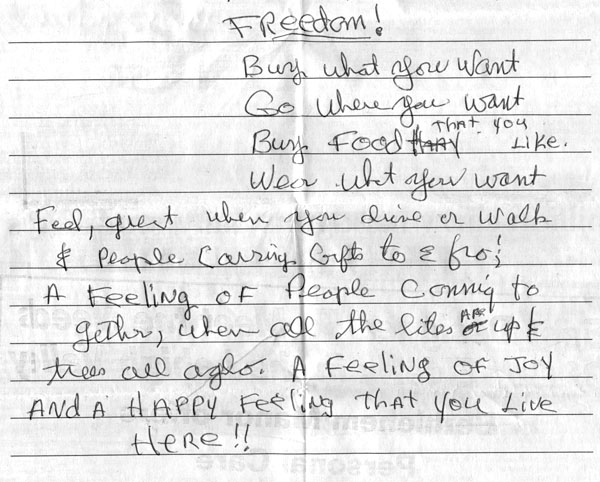 FReedom!
Buy what you want
Go where you want
Buy Food THAT you Like.
Wear what you want
Feel, great when you drive or walk
& People Carring Gifts to & fro!
A Feeling of People Comnig to
gether, when all the lites ARE up &
trees all aglo. A Feeling of Joy
AND A HAPPY Feeling THAT you Live
Here!!
Personal Care